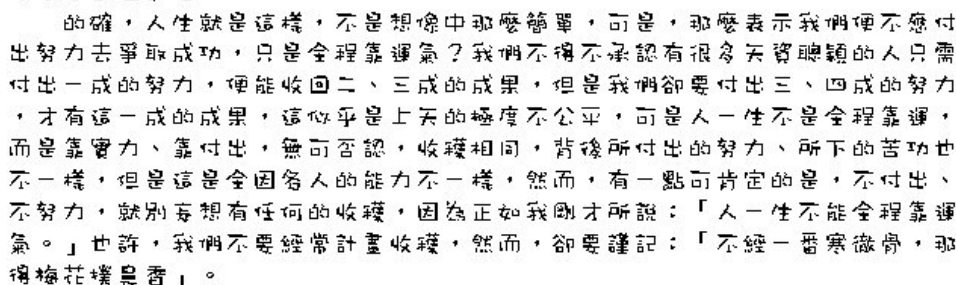 的確，人生就是這樣，不是想像中那麼簡單，可是，那麼表示我們便不應付
出努力去爭取成功，只是全程靠運氣？我們不得不承認有很多天資聰穎的人只需
付出一成的努力，便能收回二、三成的成果，但是我們卻要付出三、四成的努力
，才有這一成的成果，這似乎是上天的極度不公平，可是人一生不是全程靠運，
而是靠實力、靠付出，無可否認，收穫相同，背後所付出的努力、所下的苦功也
不一樣，但是這是全因各人的能力不一樣，然而，有一點可肯定的是，不付出、
不努力，就別妄想有任何的收穫，因為正如我剛才所說：「人一生不能全程靠運
氣。」也許，我們不要經常計畫收穫，然而，卻要謹記：「不經一番寒徹骨，那
得梅花撲鼻香」。